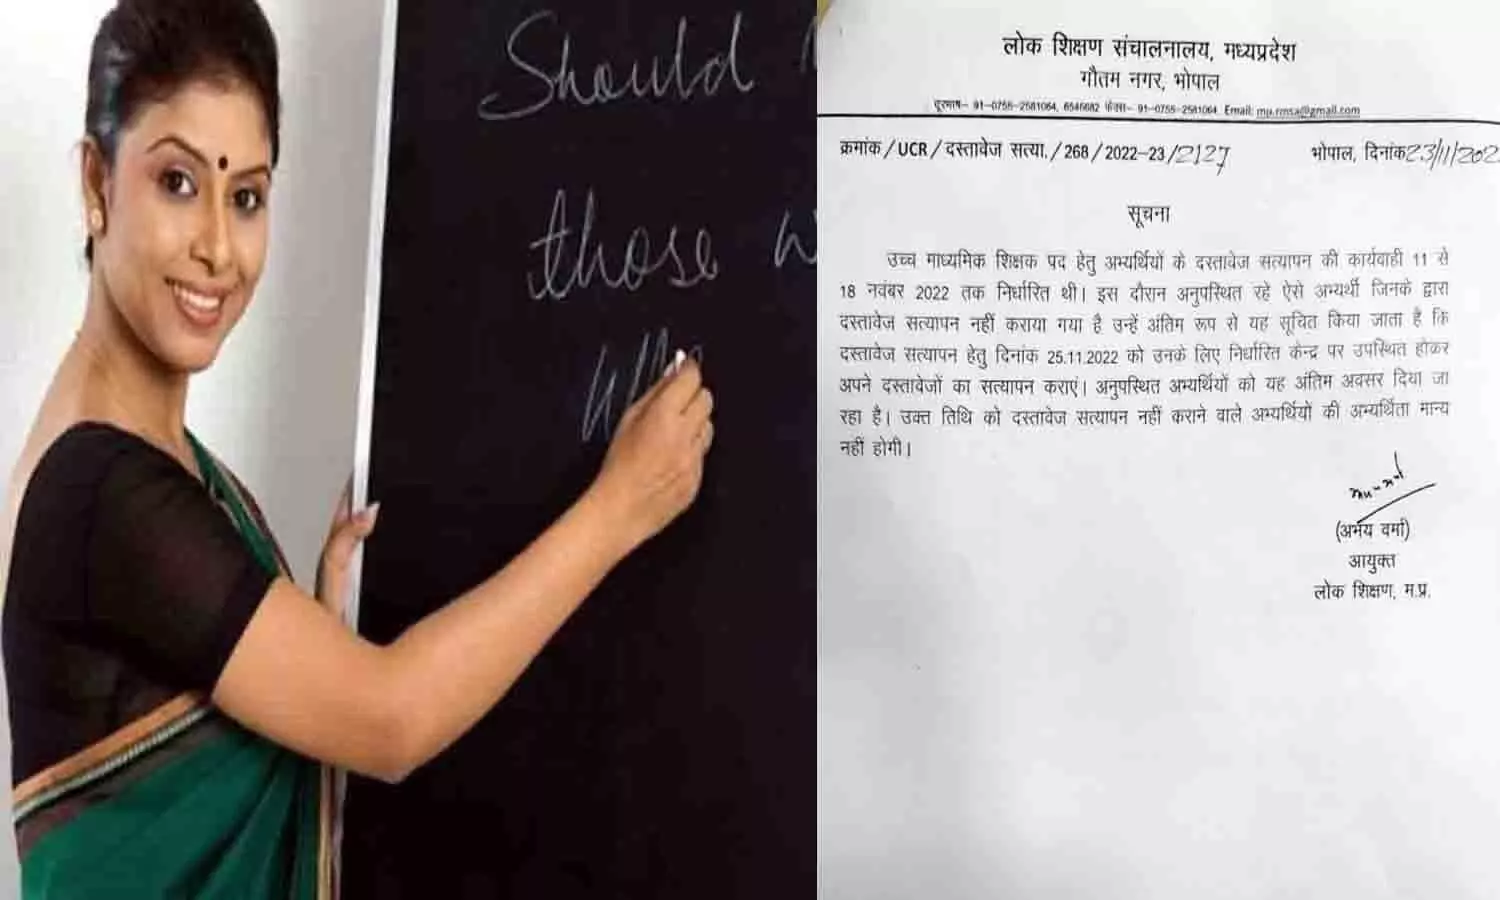 Should
those w
Wh
लोक शिक्षण संचालनालय, मध्यप्रदेश
गौतम नगर, भोपाल
दूरभाष– 91–0755–2581064, 6546682 फेक्स– 91–0755–2581064 Email: mu.rmsa@gmail.com
क्रमांक/UCR/दस्तावेज सत्या./268/2022–23/2127 भोपाल, दिनांक 23/11/202
सूचना
उच्च माध्यमिक शिक्षक पद हेतु अभ्यर्थियों के दस्तावेज सत्यापन की कार्यवाही 11 से
18 नवंबर 2022 तक निर्धारित थी। इस दौरान अनुपस्थित रहे ऐसे अभ्यर्थी जिनके द्वारा
दस्तावेज सत्यापन नहीं कराया गया है उन्हें अंतिम रूप से यह सूचित किया जाता है कि
दस्तावेज सत्यापन हेतु दिनांक 25.11.2022 को उनके लिए निर्धारित केन्द्र पर उपस्थित होकर
अपने दस्तावेजों का सत्यापन कराएं। अनुपस्थित अभ्यर्थियों को यह अंतिम अवसर दिया जा
रहा है। उक्त तिथि को दस्तावेज सत्यापन नहीं कराने वाले अभ्यर्थियों की अभ्यर्थिता मान्य
नहीं होगी।
(अभय वर्मा)
आयुक्त
लोक शिक्षण, म.प्र.